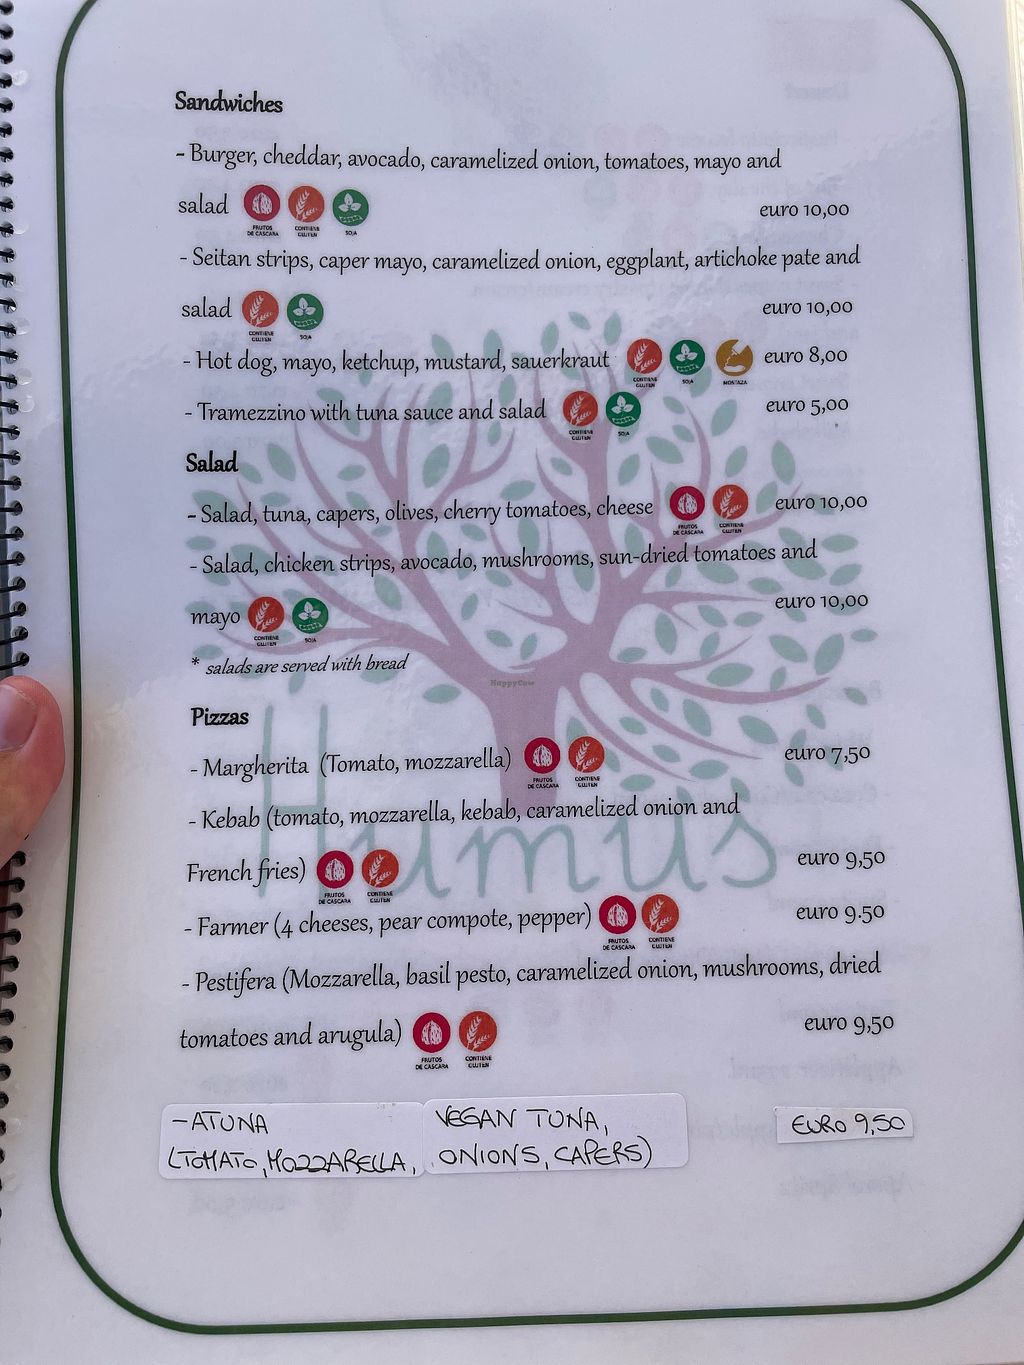 Sandwiches
- Burger, cheddar, avocado, caramelized onion, tomatoes, mayo and
salad FRUTOS DE CÁSCARA CONTIENE GLUTEN SOJA euro 10,00
- Seitan strips, caper mayo, caramelized onion, eggplant, artichoke pate and
salad CONTIENE GLUTEN SOJA euro 10,00
- Hot dog, mayo, ketchup, mustard, sauerkraut CONTIENE GLUTEN SOJA MOSTAZA euro 8,00
- Tramezzino with tuna sauce and salad CONTIENE GLUTEN SOJA euro 5,00
Salad
- Salad, tuna, capers, olives, cherry tomatoes, cheese FRUTOS DE CÁSCARA CONTIENE GLUTEN euro 10,00
- Salad, chicken strips, avocado, mushrooms, sun-dried tomatoes and
mayo CONTIENE GLUTEN SOJA euro 10,00
* salads are served with bread
HappyCow
Pizzas
- Margherita (Tomato, mozzarella) FRUTOS DE CÁSCARA CONTIENE GLUTEN euro 7,50
- Kebab (tomato, mozzarella, kebab, caramelized onion and
Humus
French fries) FRUTOS DE CÁSCARA CONTIENE GLUTEN euro 9,50
- Farmer (4 cheeses, pear compote, pepper) FRUTOS DE CÁSCARA CONTIENE GLUTEN euro 9.50
- Pestifera (Mozzarella, basil pesto, caramelized onion, mushrooms, dried
tomatoes and arugula) FRUTOS DE CÁSCARA CONTIENE GLUTEN euro 9,50
- ATUNA VEGAN TUNA, EURO 9,50
(TOMATO, MOZZARELLA, ONIONS, CAPERS)